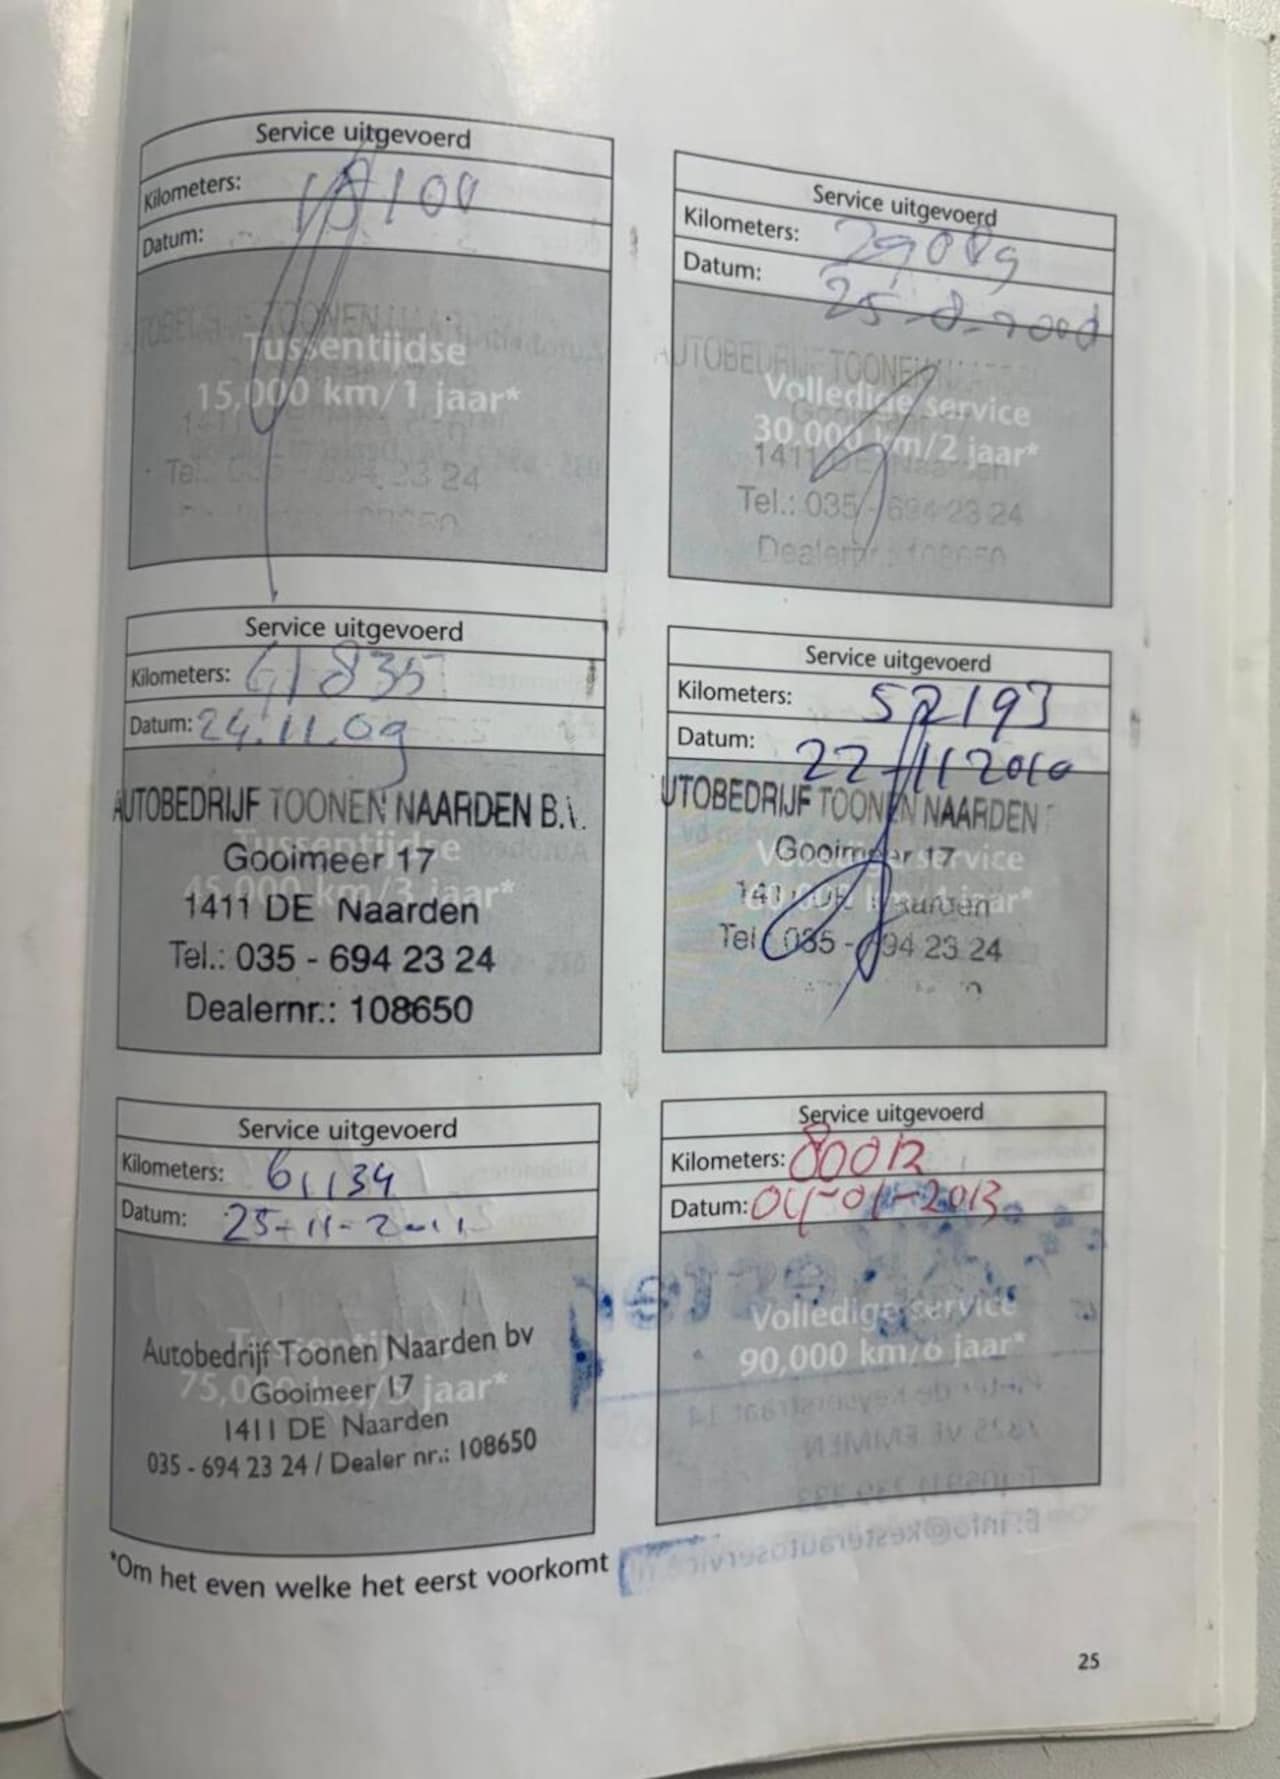 Service uitgevoerd
Kilometers:
Datum:
TOONEN
Tussentijdse
15,000 km/1 jaar*
Tel.: 23 24
Service uitgevoerd
Kilometers: 29089
Datum: 25-8-2008
AUTOBEDRIJF TOONEN
Volledige service
30,000 km/2 jaar*
1411 DE Naarden
Tel.: 035 - 694 23 24
Dealernr.: 108650
Service uitgevoerd
Kilometers: 41835
Datum: 24.11.09
AUTOBEDRIJF TOONEN NAARDEN B.V.
Tussentijdse
Gooimeer 17
45,000 km/3 jaar*
1411 DE Naarden
Tel.: 035 - 694 23 24
Dealernr.: 108650
Service uitgevoerd
Kilometers: 52193
Datum: 22-11 2010
UTOBEDRIJF TOONEN NAARDEN
Gooimeer 17
Volledige service
1411 DE Naarden
60,000 km/4 jaar*
Tel.: 035 - 694 23 24
Service uitgevoerd
Kilometers: 61134
Datum: 25-11-2011
Autobedrijf Toonen Naarden bv
Tussentijdse
75,000 km/5 jaar*
Gooimeer 17
1411 DE Naarden
035 - 694 23 24 / Dealer nr.: 108650
Service uitgevoerd
Kilometers: 80012
Datum: 04-01-2013
Volledige service
90,000 km/6 jaar*
*Om het even welke het eerst voorkomt
25